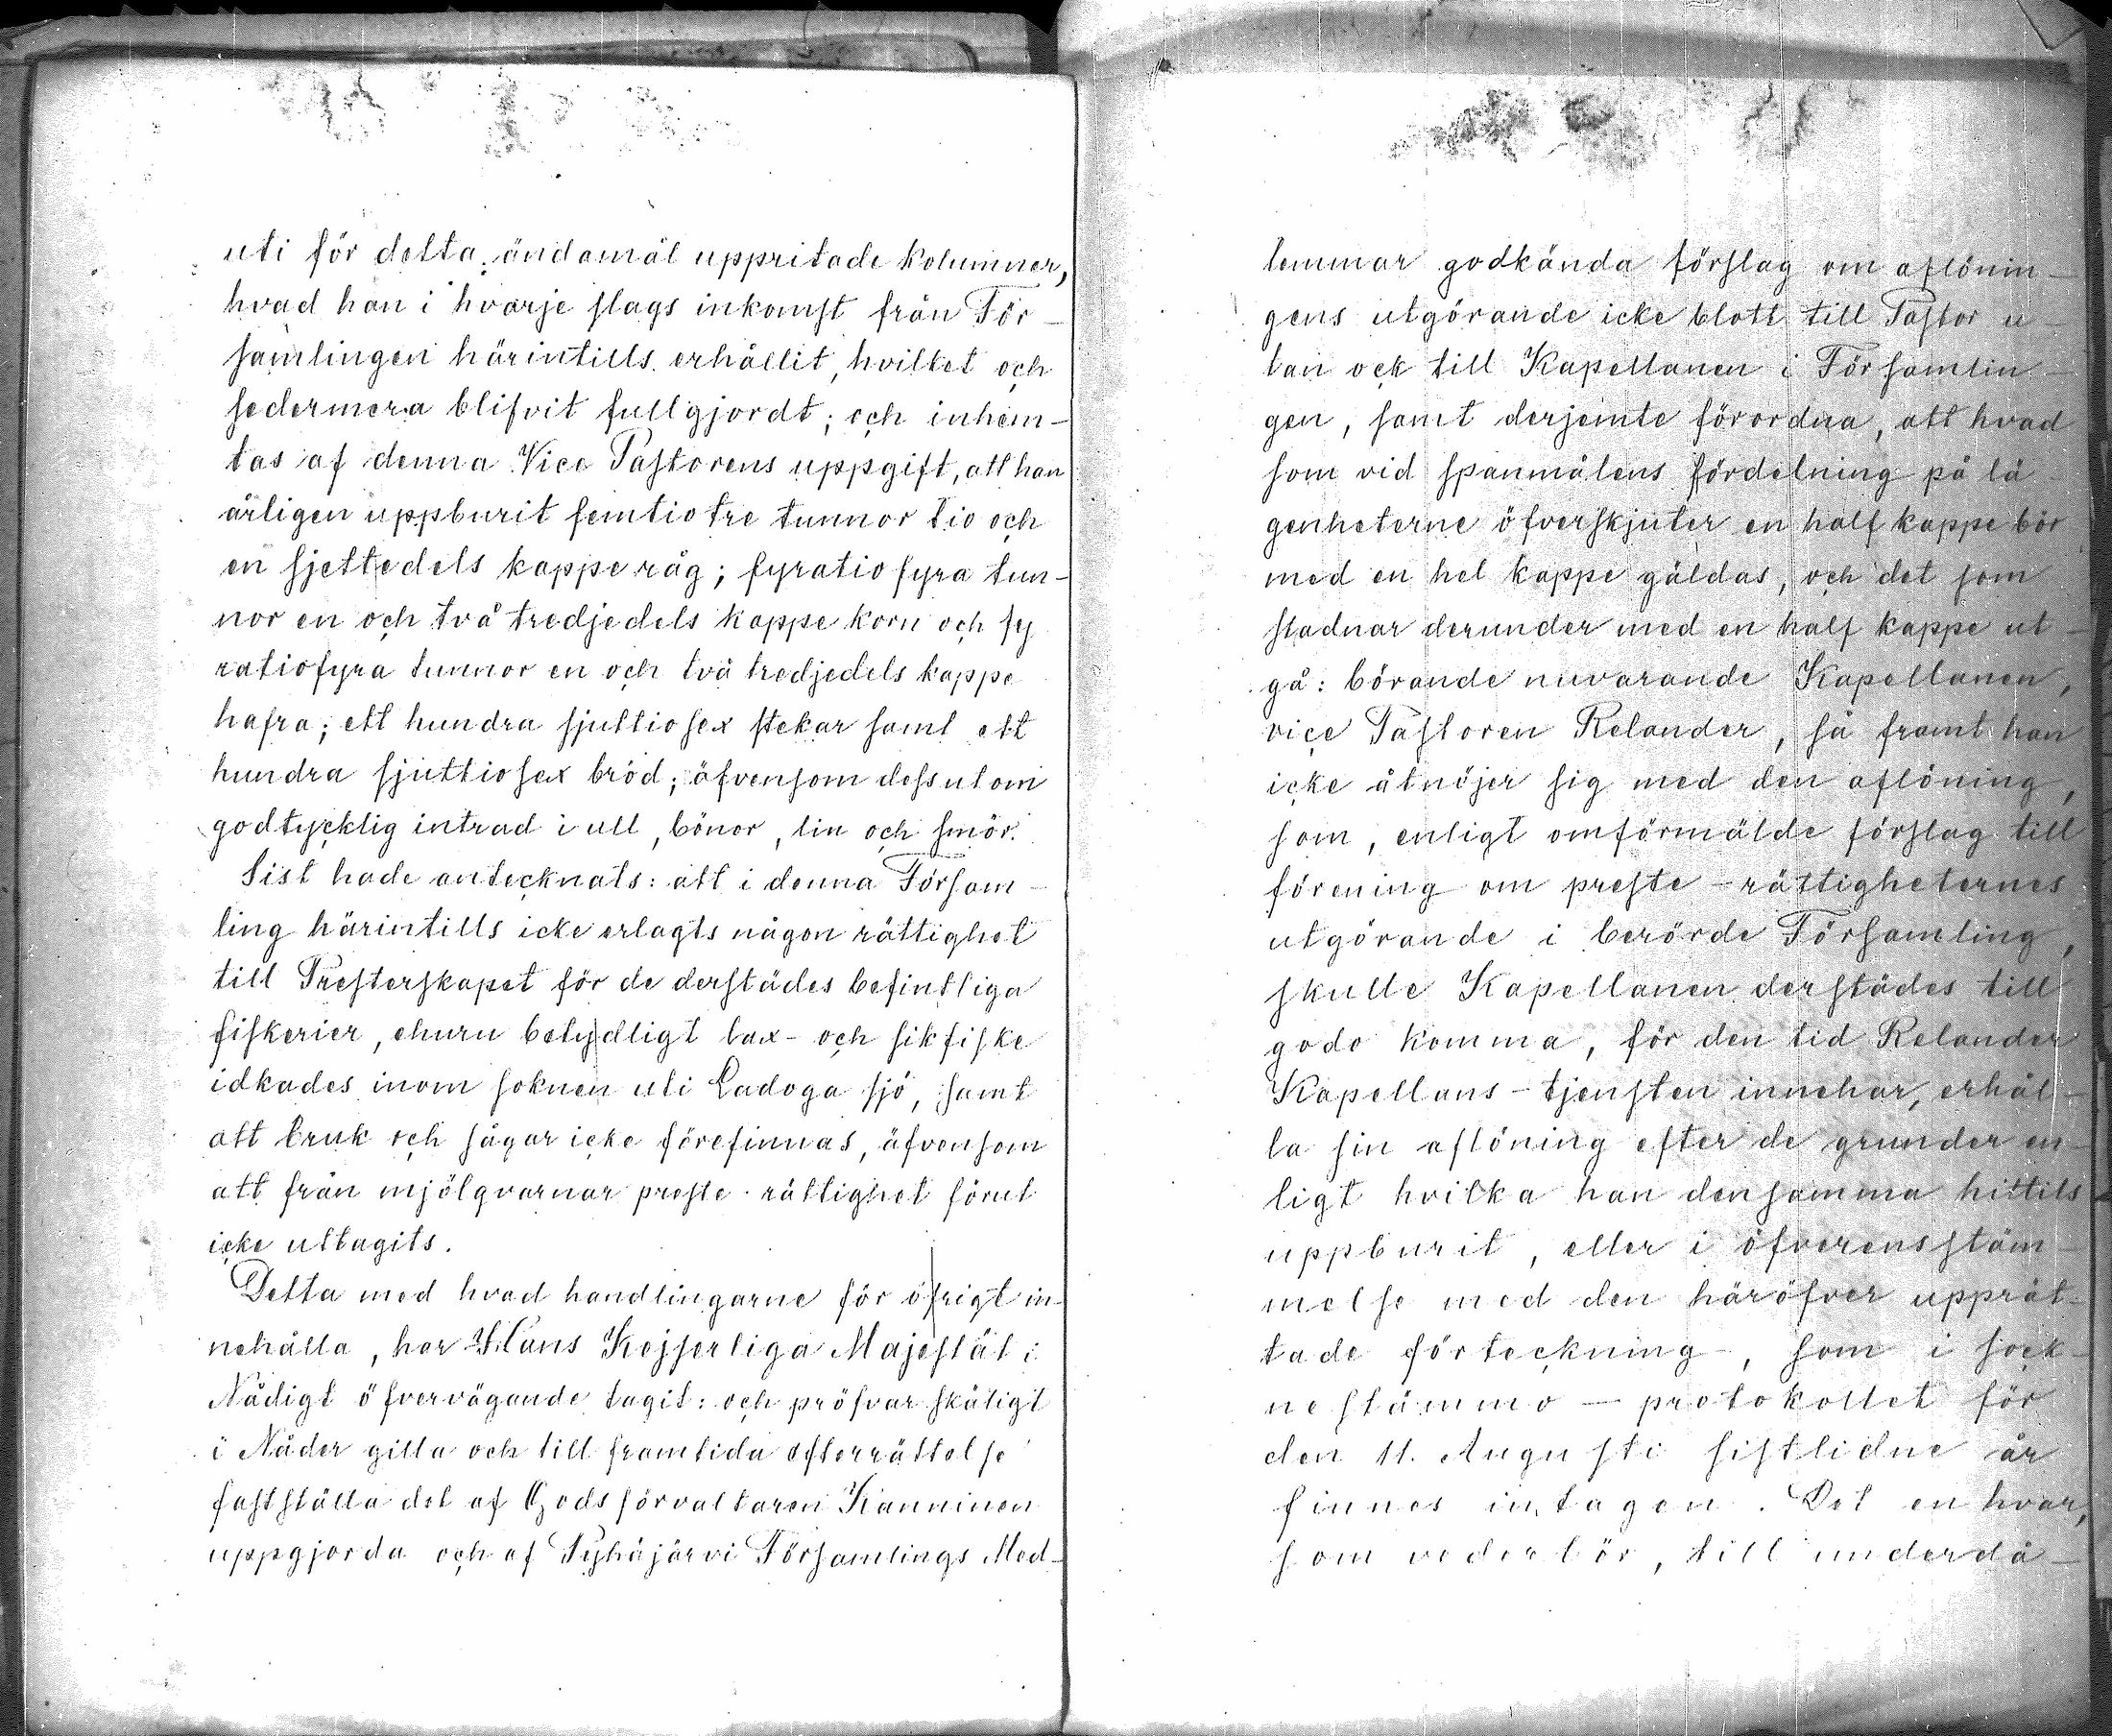 uti för detta ändamål uppritade kolumner,
hvad han i hvarje slags inkomst från För-
samlingen härintills erhållit, hvilket och
sedermera blifvit fullgjordt; och inhem-
tas af denna Vice Pastorens uppgift, att han
årligen uppburit femtiotre tunnor tio och
en sjettedels kappe råg; fyratiofyra tun-
nor en och två tredjedels kappe korn och fy
ratiofyra tunnor en och två tredjedels kappe
hafra; ett hundra sjuttiosex stekar samt ett
hundra sjuttiosex bröd; äfvensom dessutom
godtycklig intrad i ull, bönor, lin och smör.
Sist hade antecknats: att i denna Försam-
ling härintills icke erlagts någon rättighet
till Presterskapet för de derstädes befintliga
fiskerier, ehuru betydligt lax- och sikfiske
idkades inom soknen uti Ladoga sjö, samt
att bruk och sågar icke förefinnas, äfvensom
att från mjölqvarnar preste-rättighet förut
icke uttagits.
Detta med hvad handlingarne för öfrigt in-
nehålla, har Hans Kejserliga Majestät i
Nådigt öfvervägande tagit: och pröfvar skäligt
i Nåder gilla och till framtida efterrättelse
fastställa det af Godsförvaltaren Kanninen
uppgjorda och af Pyhäjärvi Församlings Med-
lemmar godkända förslag om aflönin-
gens utgörande icke blott till Pastor u-
tan ock till Kapellanen i Församlin-
gen, samt derjemte förordna, att hvad
som vid spanmålens fördelning på lä-
genheterne öfverskjuter en half kappe bör
med en hel kappe gäldas, och det som
stadnar derunder med en half kappe ut-
gå: börande nuvarande Kapellanen,
vice Pastoren Relander, så framt han
icke åtnöjer sig med den aflöning,
som, enligt omförmälde förslag till
förening om preste-rättigheternes
utgörande i berörde Församling,
skulle Kapellanen derstädes till
godo komma, för den tid Relander
Kapellans-tjensten innehar, erhål-
la sin aflöning efter de grunder en-
ligt hvilka han densamma hittils
uppburit, eller i öfverensstäm-
melse med den häröfver upprät-
tade förteckning, som i sock-
nestämmo-protokollet för
den 11. Augusti sistlidne år
finnes intagen. Det en hvar,
som vederbör, till underdå-